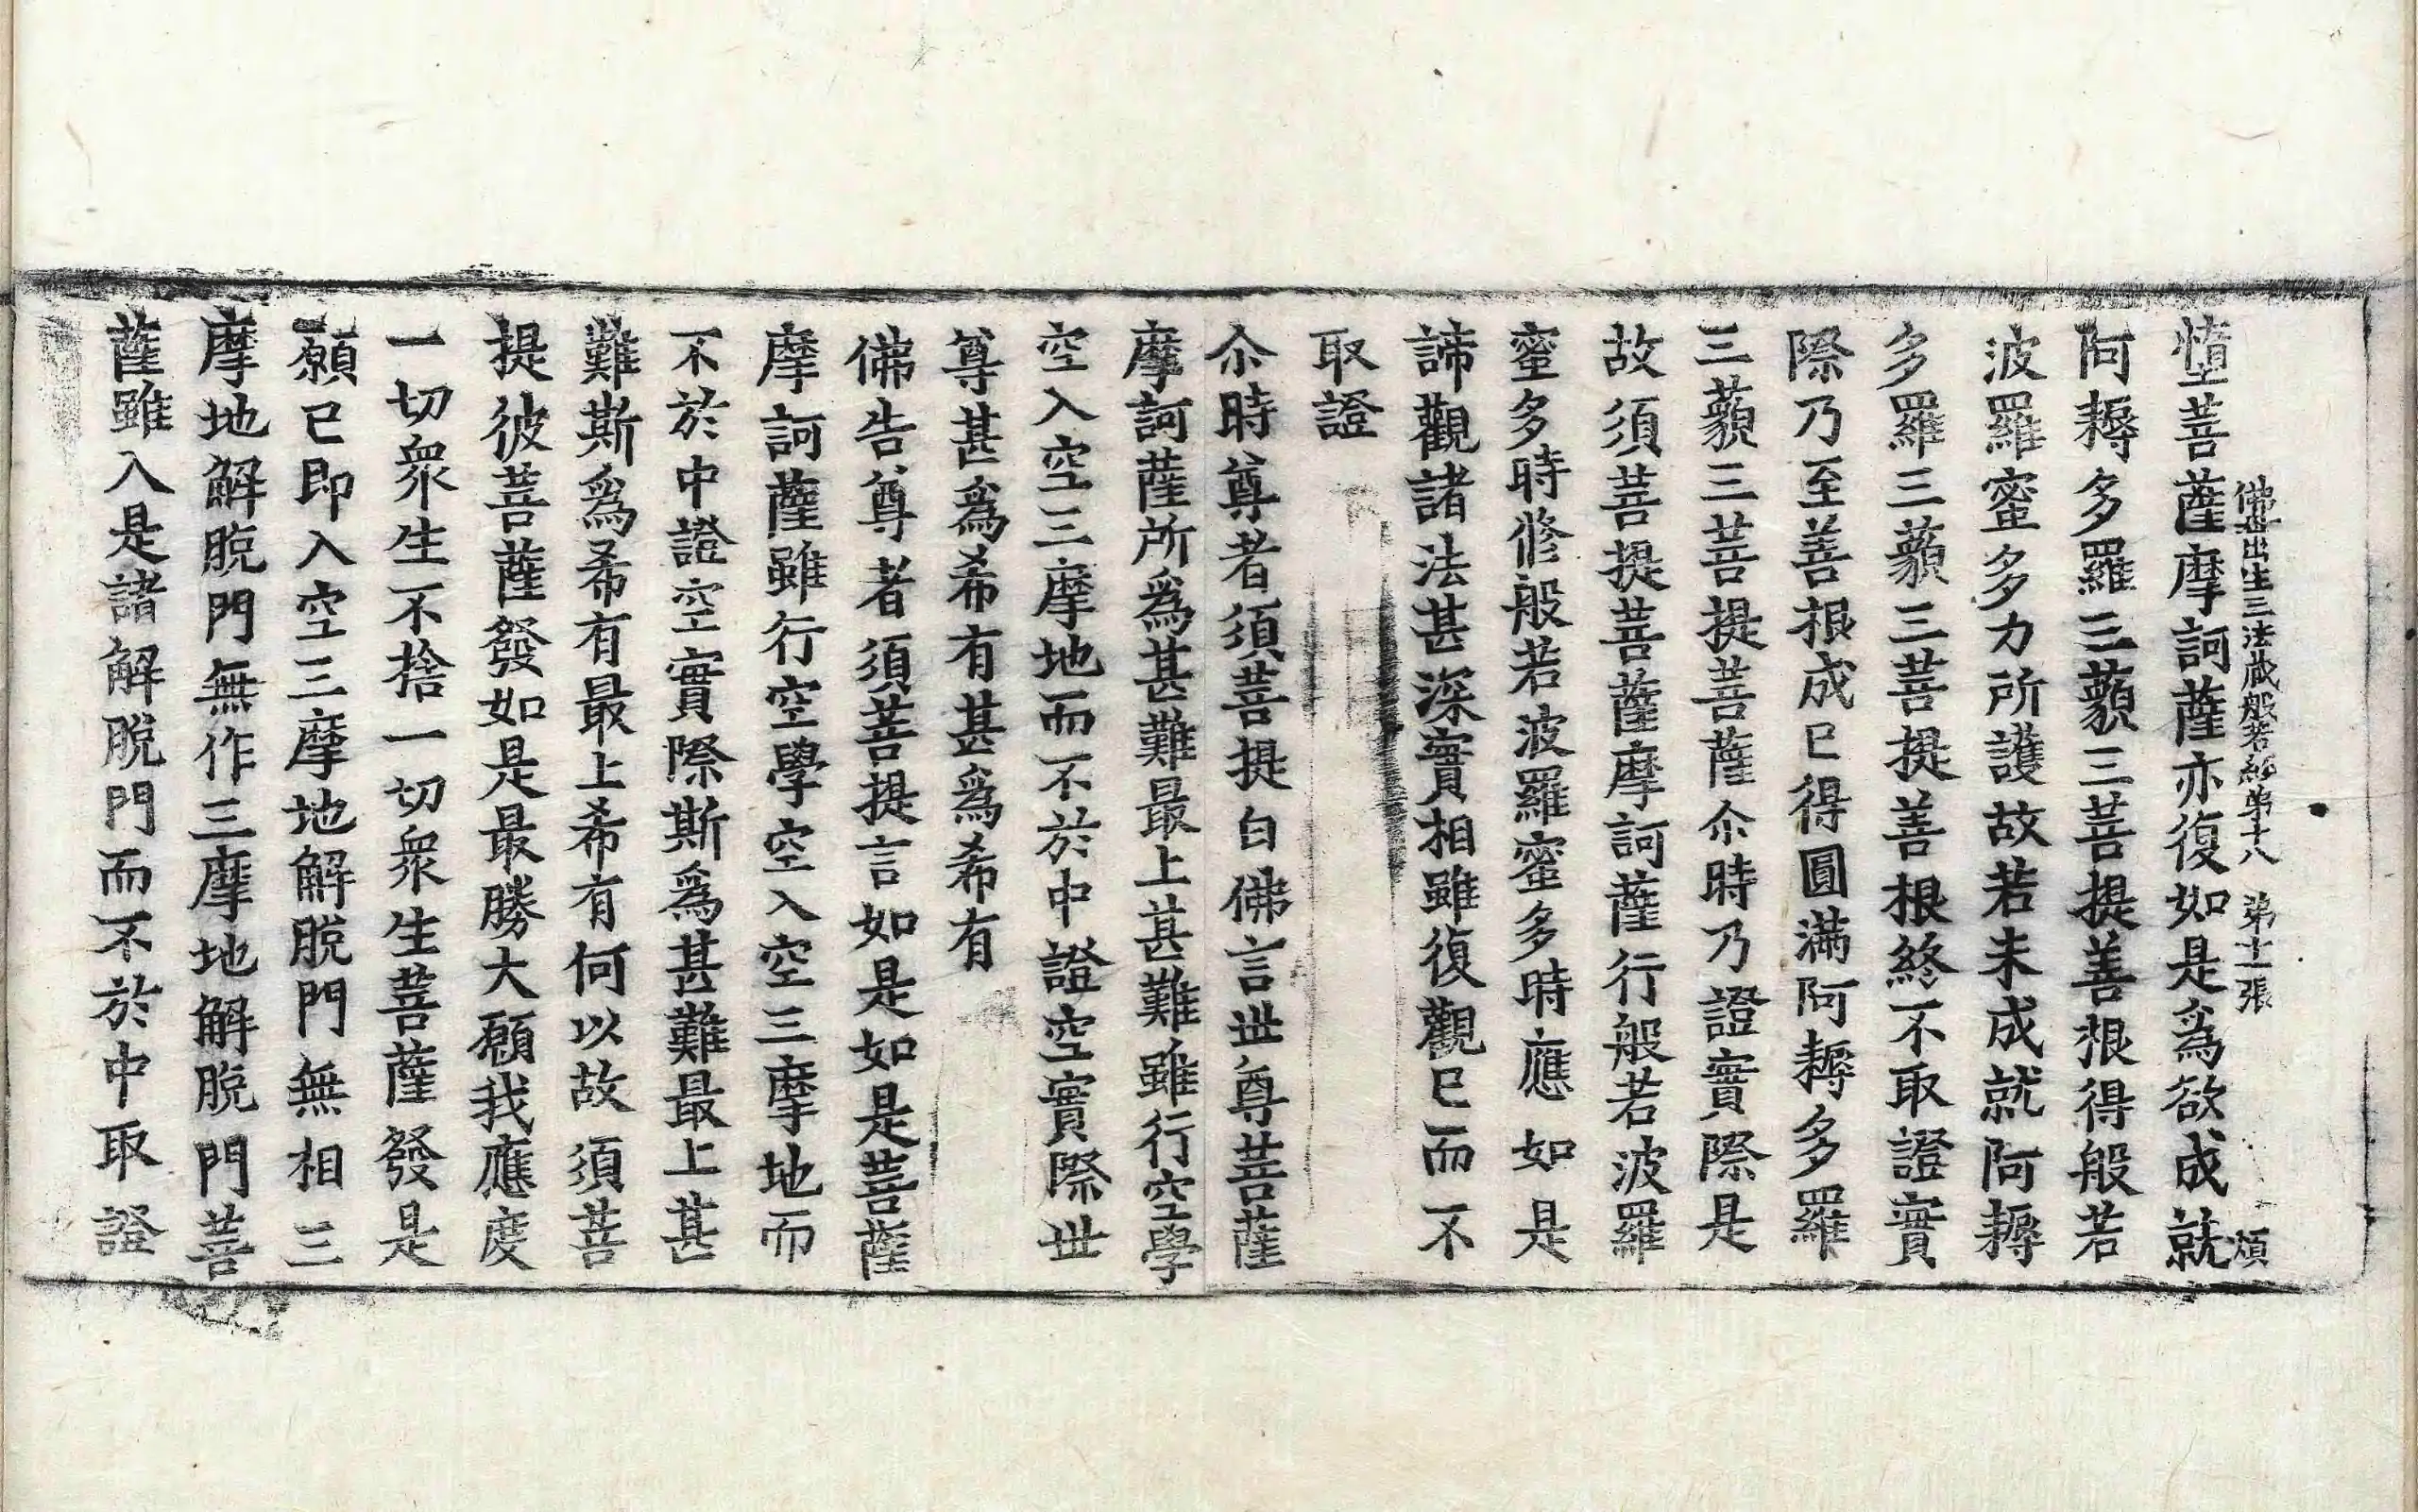 墮菩薩摩訶薩亦復如是爲欲成就
佛母出生三法藏般若經第十八 第十一張 煩
阿耨多羅三藐三菩提善根得般若
波羅蜜多力所護故若未成就阿耨
多羅三藐三菩提善根終不取證實
際乃至善根成已得圓滿阿耨多羅
三藐三菩提菩薩尒時乃證實際是
故須菩提菩薩摩訶薩行般若波羅
蜜多時修般若波羅蜜多時應如是
諦觀諸法甚深實相雖復觀已而不
取證
尒時尊者須菩提白佛言世尊菩薩
摩訶薩所爲甚難最上甚難雖行空學
空入空三摩地而不於中證空實際世
尊甚爲希有甚爲希有
佛告尊者須菩提言如是如是菩薩
摩訶薩雖行空學空入空三摩地而
不於中證空實際斯爲甚難最上甚
難斯爲希有最上希有何以故須菩
提彼菩薩發如是最勝大願我應度
一切衆生不捨一切衆生菩薩發是
願已即入空三摩地解脫門無相三
摩地解脫門無作三摩地解脫門菩
薩雖入是諸解脫門而不於中取證